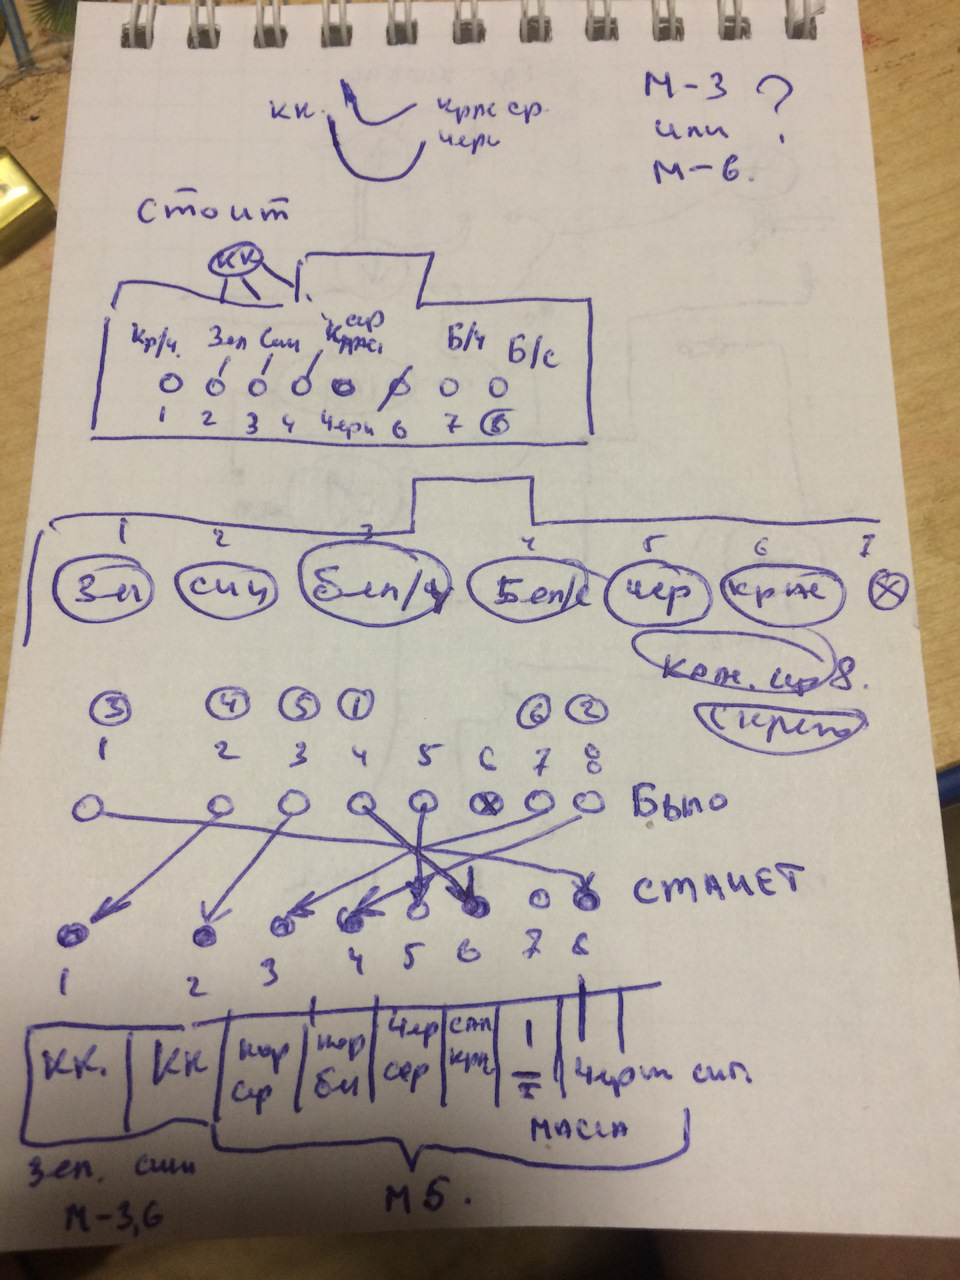 М-3 ?
кк. крас ср.
или
черн
М-6.
стоит
кк
Кр/ч. Зел Син Б/ч Б/с
1 2 3 4 черн 6 7 8
1 2 3 4 5 6 7
Зел син бел/ч Бел/с чер
8.
3 4 5 1 6 2
1 2 3 4 5 6 7 8
Было
СТАНЕТ
1 2 3 4 5 6 7 8
КК. КК кор кор чер син 1
ср бел сер крас черн син.
МАССА
Зел. син
М 5.
М-3,6